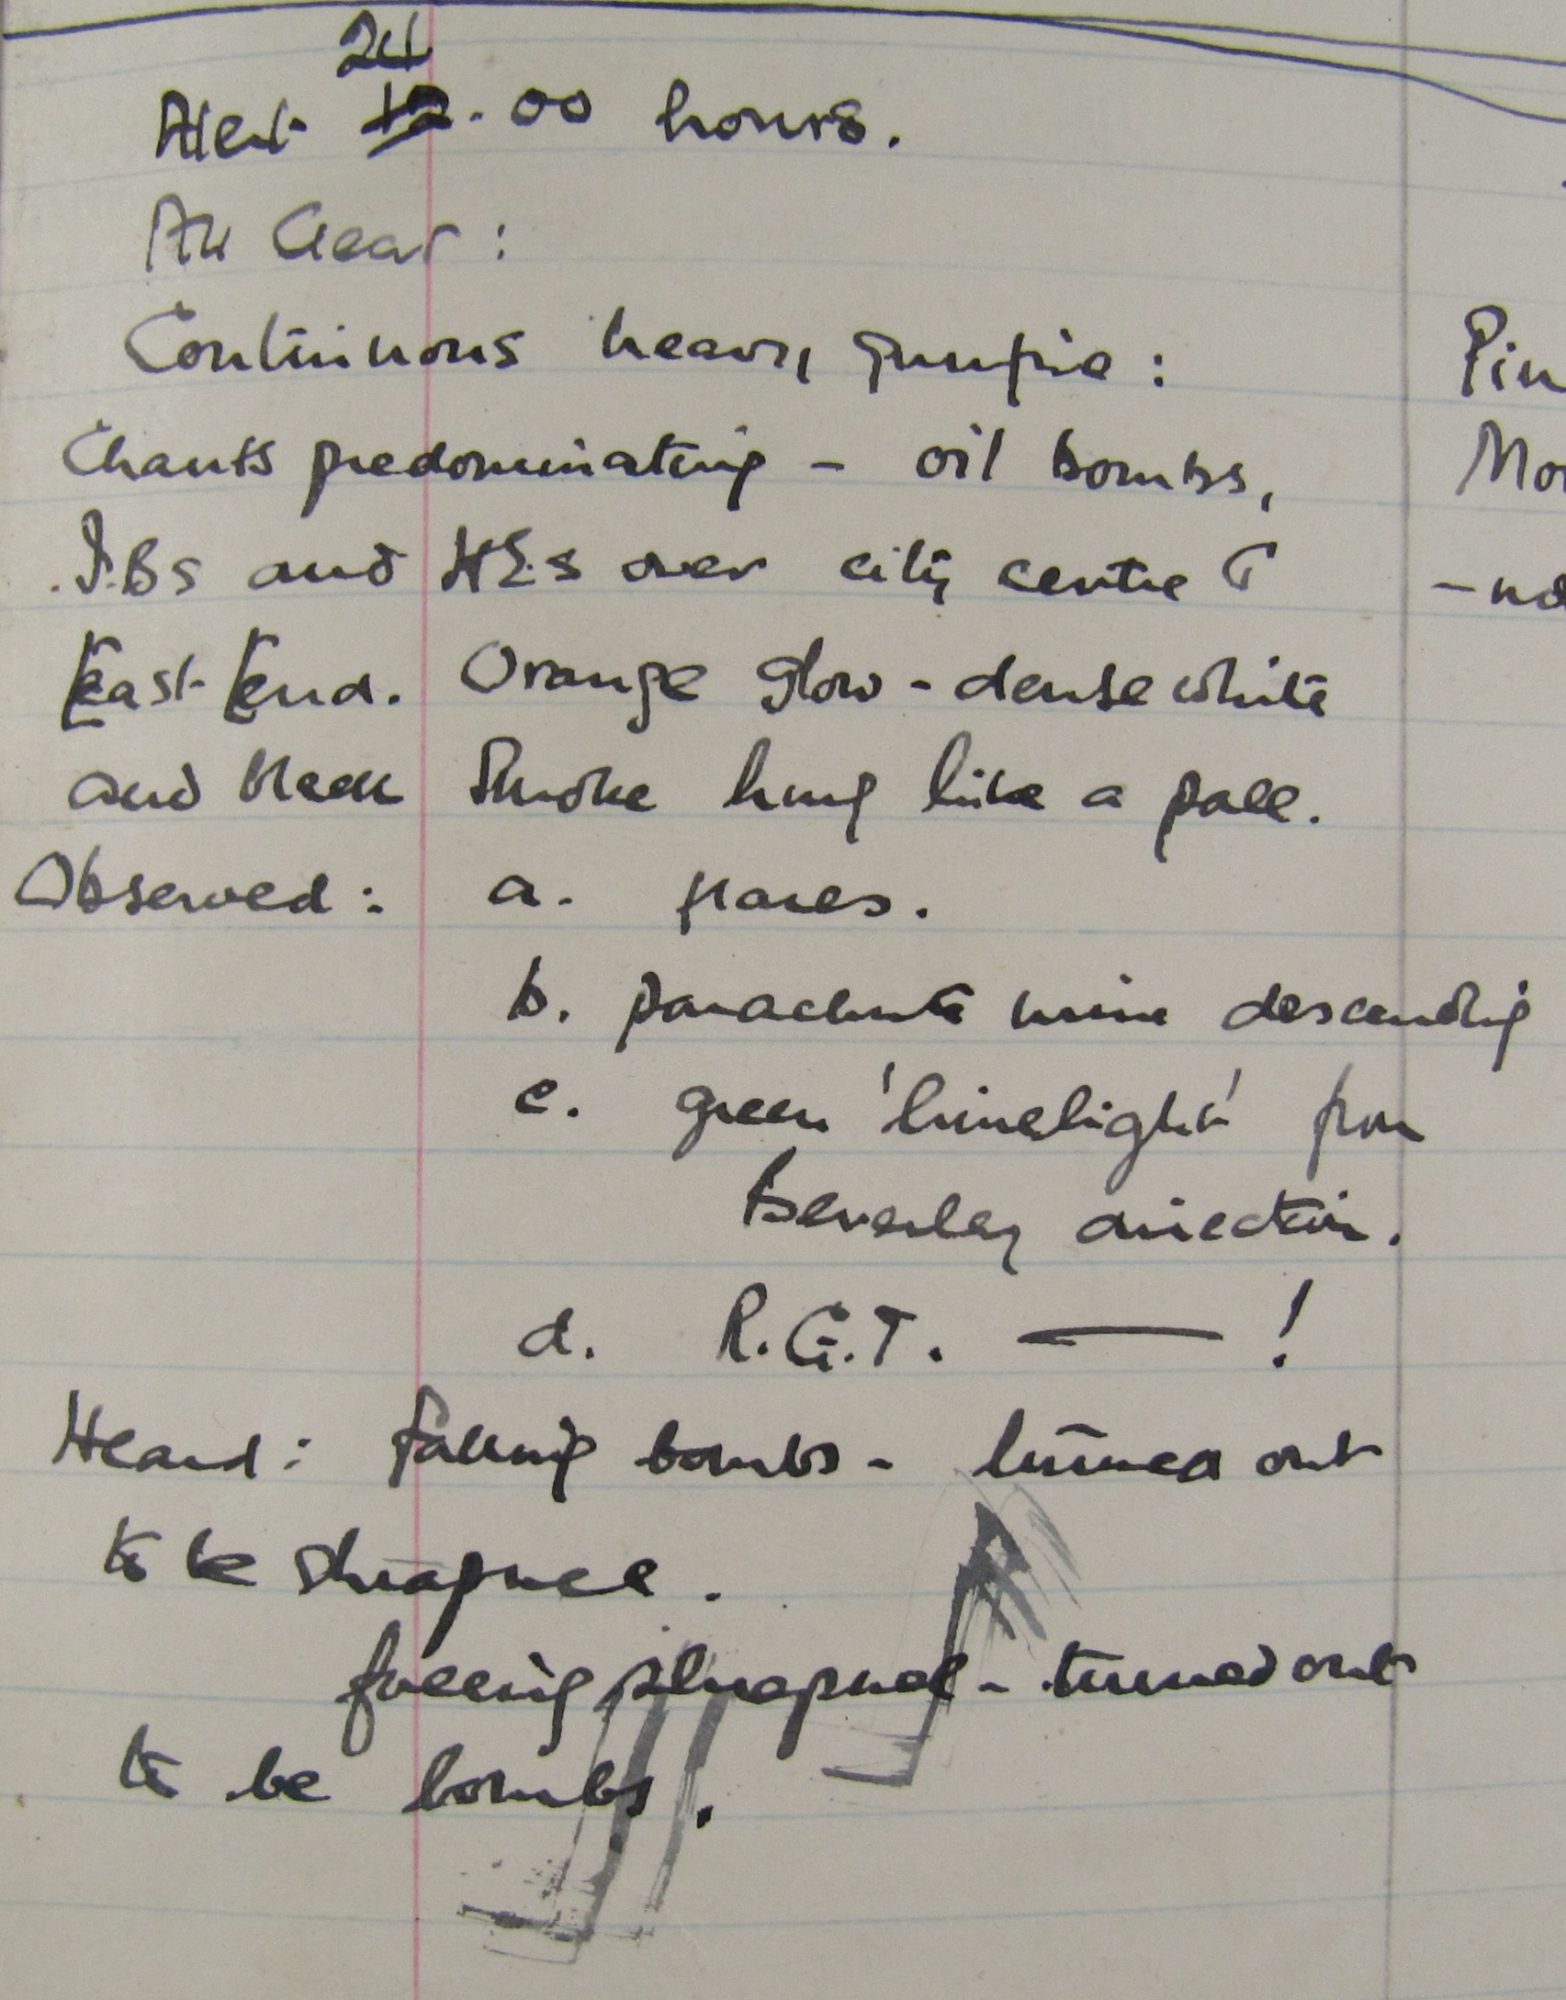 Alert 24.00 hours.
All Clear :
Continuous heavy gunfire :
predominating - oil bombs,
I.Bs and H.E.s over city centre &
East End. Orange glow - dense white
and black smoke hung like a pall.
Observed : a. flares.
b. parachute mine descending
c. green 'limelight' from
Beverley direction.
d. R.G.T. — !
Heard : falling bombs - turned out
to be shrapnel.
falling shrapnel - turned out
to be bombs.
Pin
Mon